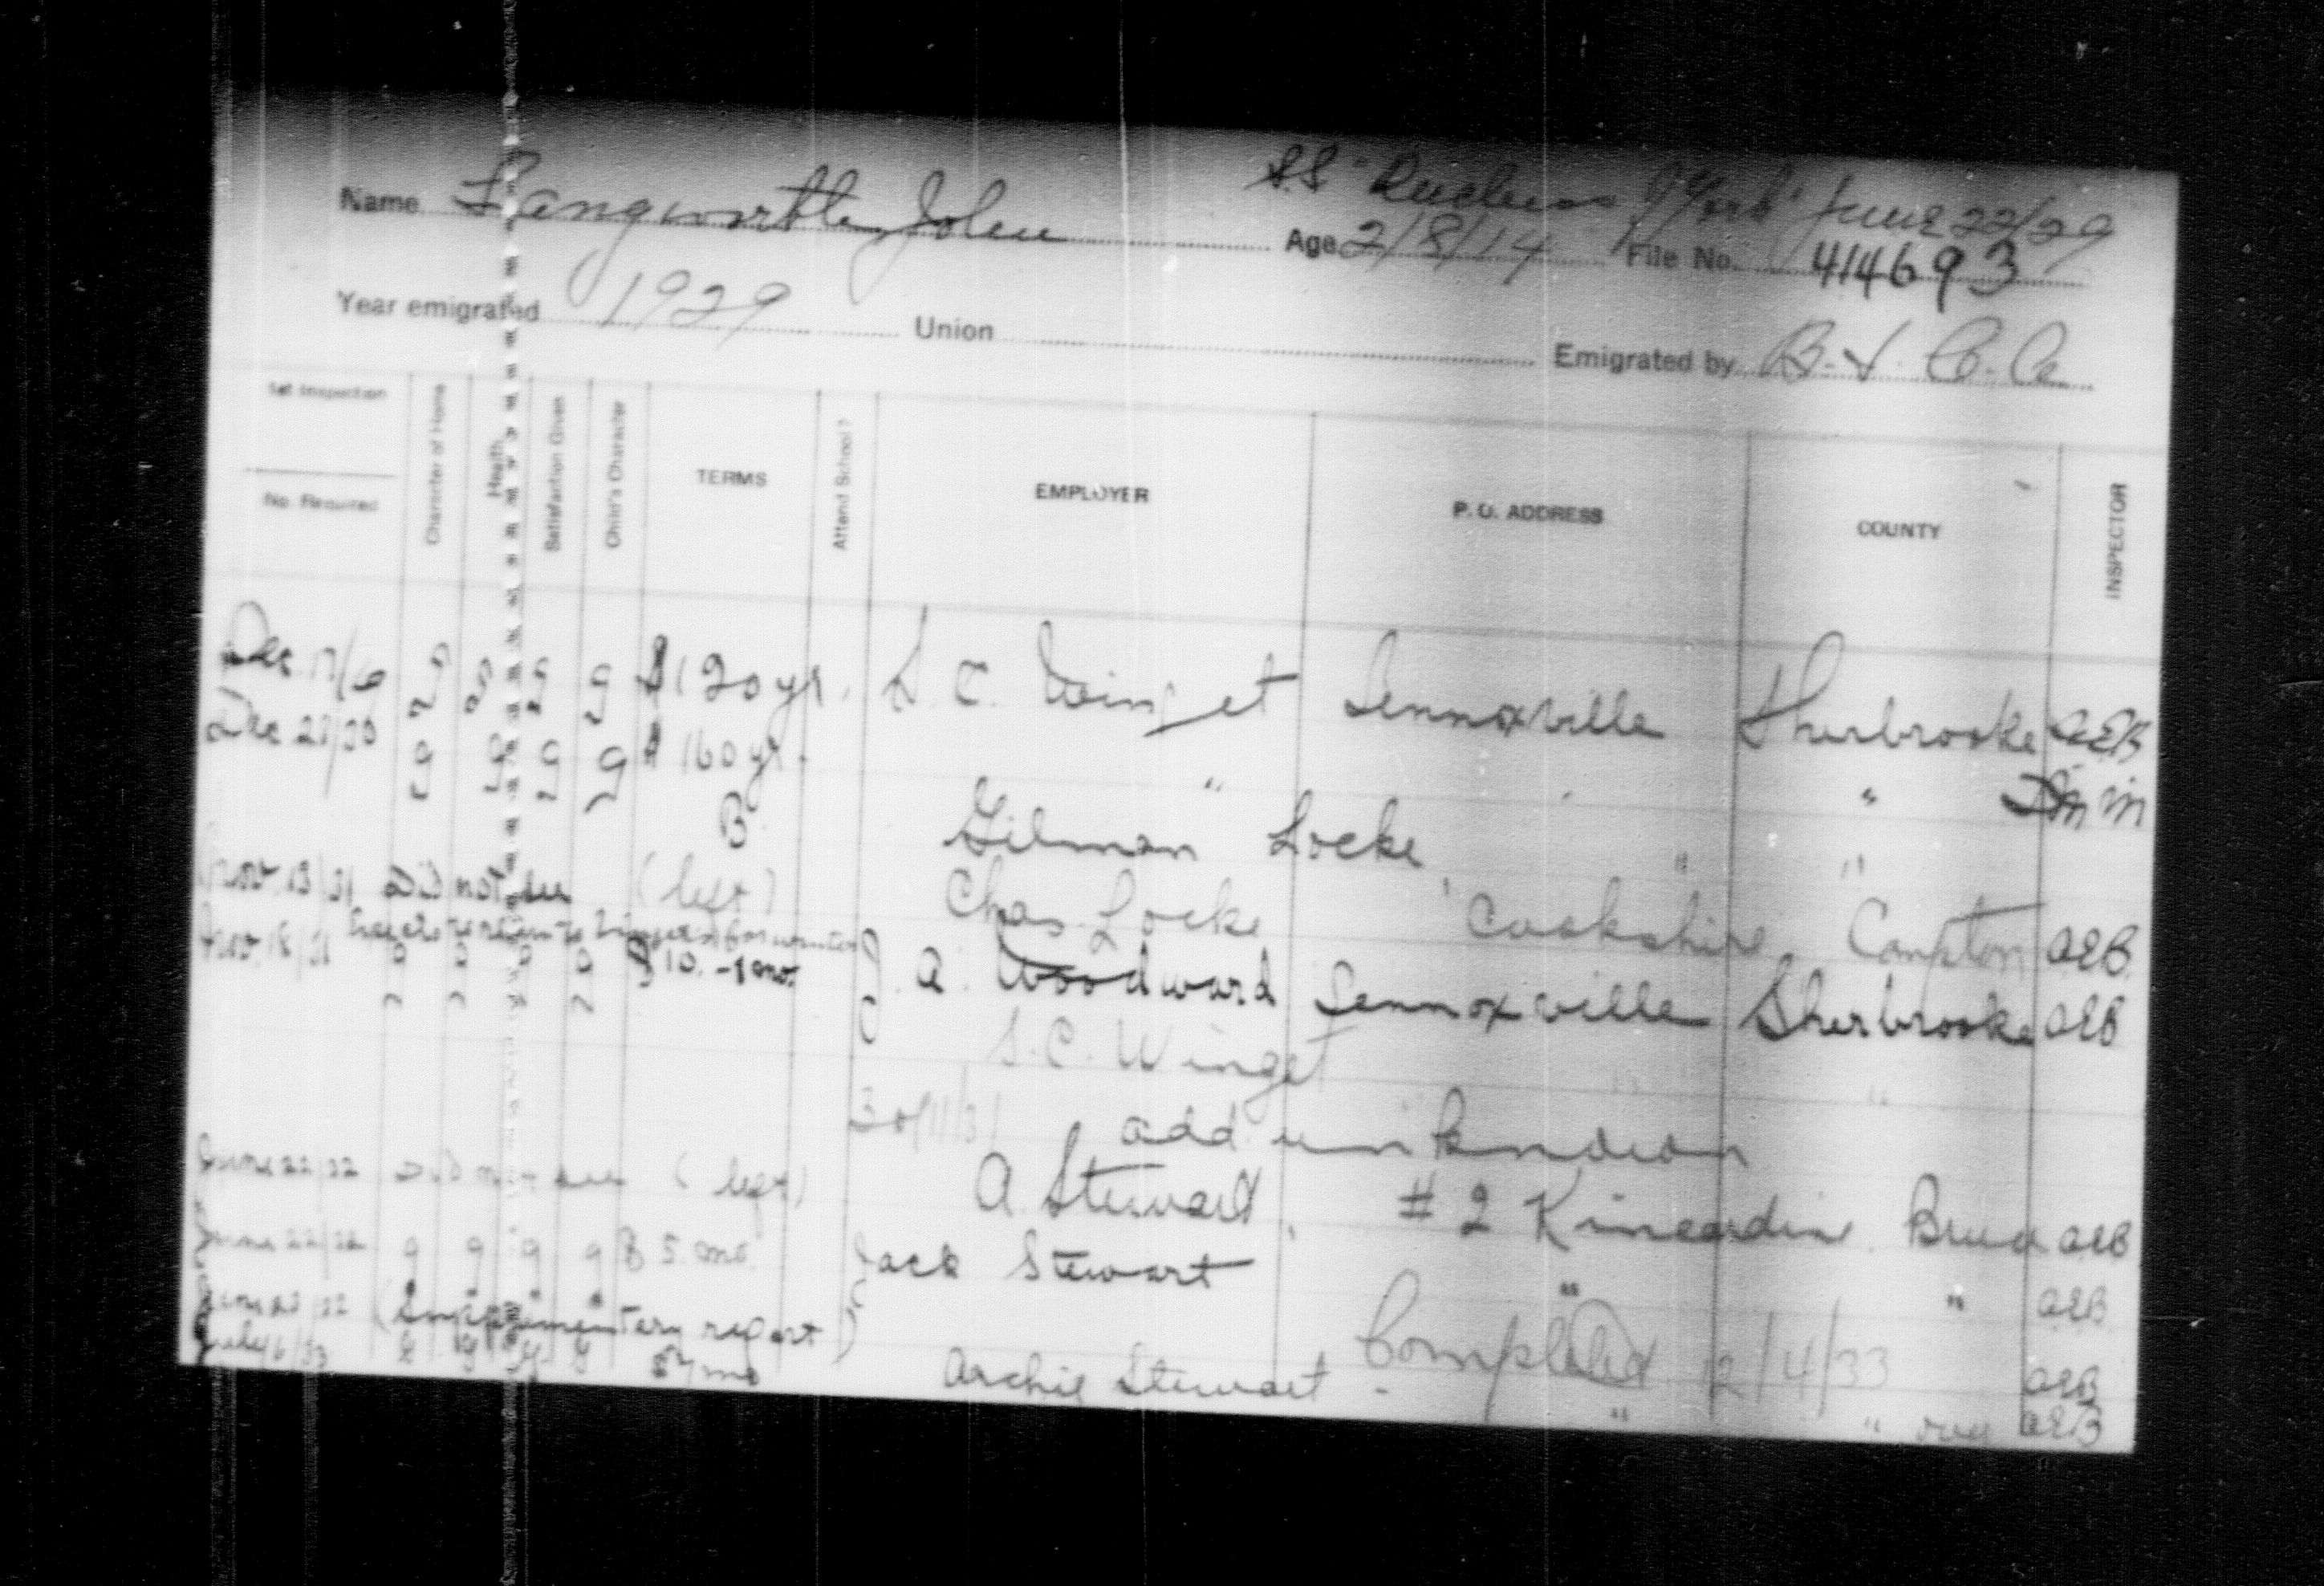 SS "Duchess of York" June 22/29
Name Langworthy John Age 2/8/14 File No. 414693
Year emigrated 1929 Union Emigrated by B.I.C.A.
1st Inspection
No. Required Character of Home Health Satisfaction Given Child's Character TERMS Attend School? EMPLOYER P. O. ADDRESS COUNTY INSPECTOR
Dec. g g g g $120 yr. S. C. Winget Lennoxville Sherbrooke AEB
Dec g g g g $160 yr. " "
B Gilman Locke " "
Nov. 13/31 Did not see (left) Chas. Locke Cookshire Compton AEB
for winter
Nov 18/31 g g g g $10. - 1 mo. J. A. Woodward Lennoxville Sherbrooke AEB
S. C. Winget " "
30/11/31 add unknown
June 22/32 Did not see (left) A. Stewart, #2 Kincardine Bruce AEB
June 22/32 g g g g $5. mo. Jack Stewart " " AEB
June (Supplementary report) Completed 2/4/33 AEB
July 6/33 g g g g mo Archie Stewart - " " over AEB